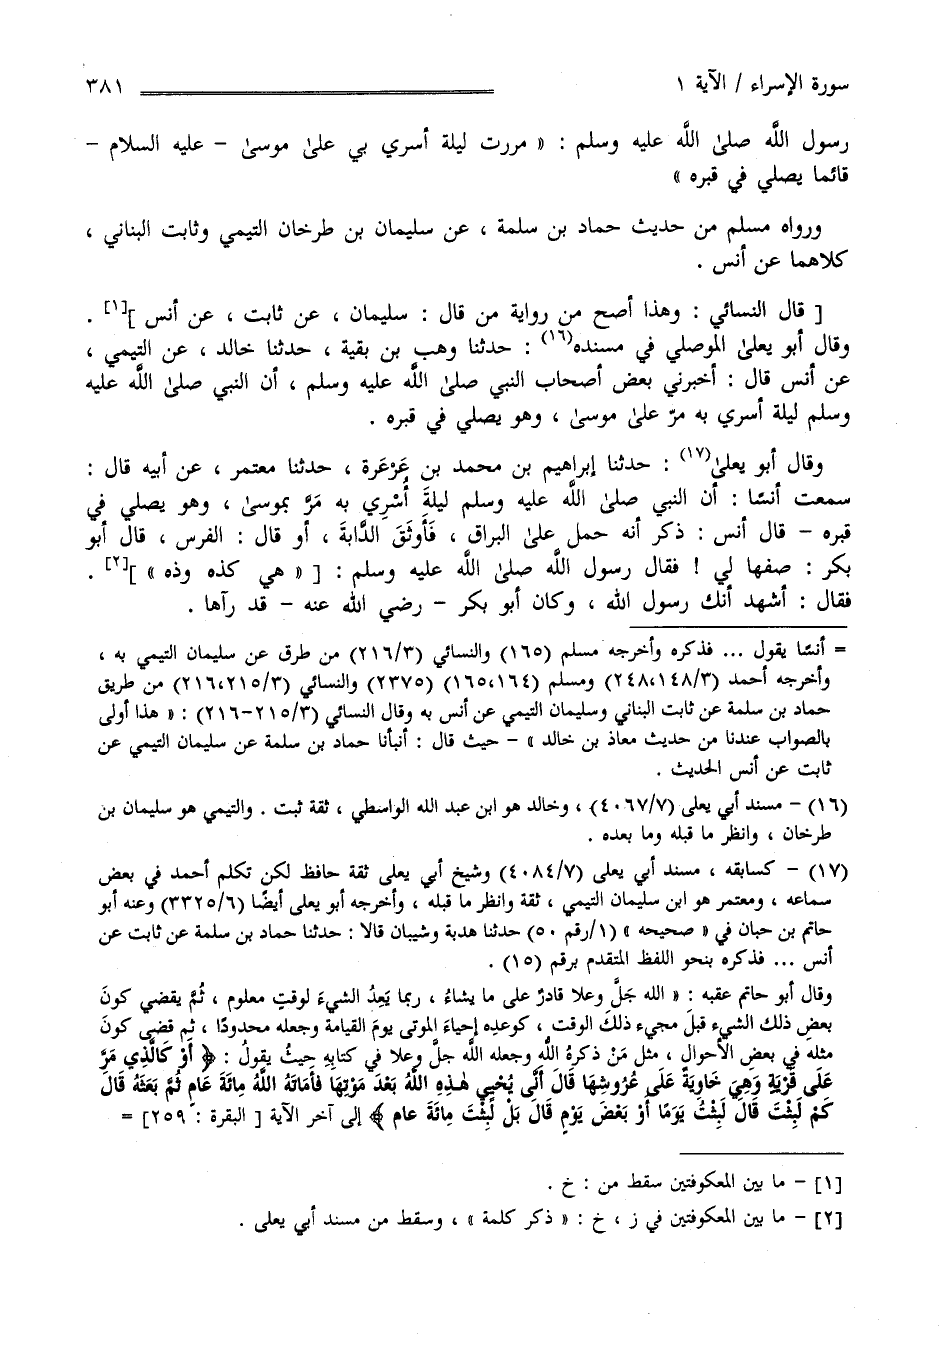 سورة الإسراء / الآية ١ ٣٨١
رسول اللَّه صلىٰ اللَّه عليه وسلم : « مررت ليلة أسري بي علىٰ موسىٰ - عليه السلام -
قائما يصلي في قبره »
ورواه مسلم من حديث حماد بن سلمة ، عن سليمان بن طرخان التيمي وثابت البناني ،
كلاهما عن أنس .
[ قال النسائي : وهذا أصح من رواية من قال : سليمان ، عن ثابت ، عن أنس ][١] .
وقال أبو يعلىٰ الموصلي في مسنده(١٦) : حدثنا وهب بن بقية ، حدثنا خالد ، عن التيمي ،
عن أنس قال : أخبرني بعض أصحاب النبي صلىٰ اللَّه عليه وسلم ، أن النبي صلىٰ اللَّه عليه
وسلم ليلة أسري به مرّ علىٰ موسىٰ ، وهو يصلي في قبره .
وقال أبو يعلىٰ(١٧) : حدثنا إبراهيم بن محمد بن عَرْعَرة ، حدثنا معتمر ، عن أبيه قال :
سمعت أنسًا : أن النبي صلىٰ اللَّه عليه وسلم ليلةَ أُسْرِي به مَرَّ بموسىٰ ، وهو يصلي في
قبره - قال أنس : ذكر أنه حمل علىٰ البراق ، فَأَوثَقَ الدَّابةَ ، أو قال : الفرس ، قال أبو
بكر : صفها لي ! فقال رسول اللَّه صلىٰ اللَّه عليه وسلم : [ « هي كذه وذه » ][٢] .
فقال : أشهد أنك رسول الله ، وكان أبو بكر - رضي الله عنه - قد رآها .
= أنسًا يقول ... فذكره وأخرجه مسلم (١٦٥) والنسائي (٢١٦/٣) من طرق عن سليمان التيمي به ،
وأخرجه أحمد (٢٤٨،١٤٨/٣) ومسلم (١٦٥،١٦٤) (٢٣٧٥) والنسائي (٢١٦،٢١٥/٣) من طريق
حماد بن سلمة عن ثابت البناني وسليمان التيمي عن أنس به وقال النسائي (٢١٥/٣-٢١٦) : « هذا أولى
بالصواب عندنا من حديث معاذ بن خالد » - حيث قال : أنبأنا حماد بن سلمة عن سليمان التيمي عن
ثابت عن أنس الحديث .
(١٦) - مسند أبي يعلى (٤٠٦٧/٧) ، وخالد هو ابن عبد الله الواسطي ، ثقة ثبت . والتيمي هو سليمان بن
طرخان ، وانظر ما قبله وما بعده .
(١٧) - كسابقه ، مسند أبي يعلى (٤٠٨٤/٧) وشيخ أبي يعلى ثقة حافظ لكن تكلم أحمد في بعض
سماعه ، ومعتمر هو ابن سليمان التيمي ، ثقة وانظر ما قبله ، وأخرجه أبو يعلى أيضًا (٣٣٢٥/٦) وعنه أبو
حاتم بن حبان في « صحيحه » (١/رقم ٥٠) حدثنا هدبة وشيبان قالا : حدثنا حماد بن سلمة عن ثابت عن
أنس ... فذكره بنحو اللفظ المتقدم برقم (١٥) .
وقال أبو حاتم عقبه : « الله جَلَّ وعلا قادرٌ على ما يشاءُ ، ربما يَعِدُ الشيءَ لوقتٍ معلوم ، ثُمَّ يقضي كونَ
بعضِ ذلك الشيء قبلَ مجيء ذلكَ الوقت ، كوعدِه إحياءَ الموتى يومَ القيامة وجعله محدودًا ، ثم قضى كونَ
مثلِه في بعض الأحوال ، مثل مَنْ ذكرهُ اللَّه وجعله اللَّه جلَّ وعلا في كتابِه حيثُ يقولُ : ﴿ أَوْ كَالَّذِي مَرَّ
عَلَى قَرْيَةٍ وَهِيَ خَاوِيَةٌ عَلَى عُرُوشِهَا قَالَ أَنَّى يُحْيِي هَـٰذِهِ اللَّهُ بَعْدَ مَوْتِهَا فَأَمَاتَهُ اللَّهُ مِائَةَ عَامٍ ثُمَّ بَعَثَهُ قَالَ
كَمْ لَبِثْتَ قَالَ لَبِثْتُ يَوْمًا أَوْ بَعْضَ يَوْمٍ قَالَ بَلْ لَبِثْتَ مِائَةَ عام ﴾ إلى آخر الآية [ البقرة : ٢٥٩] =
[١] - ما بين المعكوفتين سقط من : خ .
[٢] - ما بين المعكوفتين في ز ، خ : « ذكر كلمة » ، وسقط من مسند أبي يعلى .